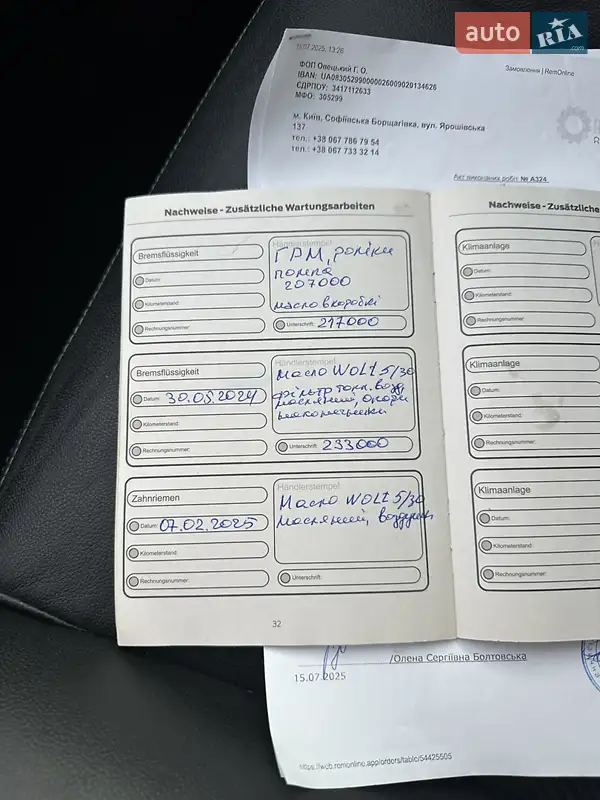 auto RIA .com
15.07.2025, 13:26
Замовлення | RemOnline
ФОП Овецький Г. О.
IBAN: UA083052990000026009020134626
ЄДРПОУ: 3417112633
МФО: 305299
м. Київ, Софіївська Борщагівка, вул. Ярошівська
137
тел.: +38 067 786 79 54
тел.: +38 067 733 32 14
Акт виконаних робіт № A324
Nachweise - Zusätzliche Wartungsarbeiten
Bremsflüssigkeit
Datum:
Kilometerstand:
Rechnungsnummer:
Händlerstempel
ГРМ, роліки
помпа
207000
масло в коробкі
Unterschrift: 217000
Bremsflüssigkeit
Datum: 30.05.2024
Kilometerstand:
Rechnungsnummer:
Händlerstempel
Масло WOLF 5/30
фільтр топл. возд
масляний,
наконечники
Unterschrift: 233000
Zahnriemen
Datum: 07.02.2025
Kilometerstand:
Rechnungsnummer:
Händlerstempel
Масло WOLF 5/30
масляний, воздушн
Unterschrift:
32
Nachweise - Zusätzliche
Klimaanlage
Datum:
Kilometerstand:
Rechnungsnummer:
Klimaanlage
Datum:
Kilometerstand:
Rechnungsnummer:
Klimaanlage
Datum:
Kilometerstand:
Rechnungsnummer:
/Олена Сергіївна Болтовська
15.07.2025
https://web.remonline.app/orders/table/54425505